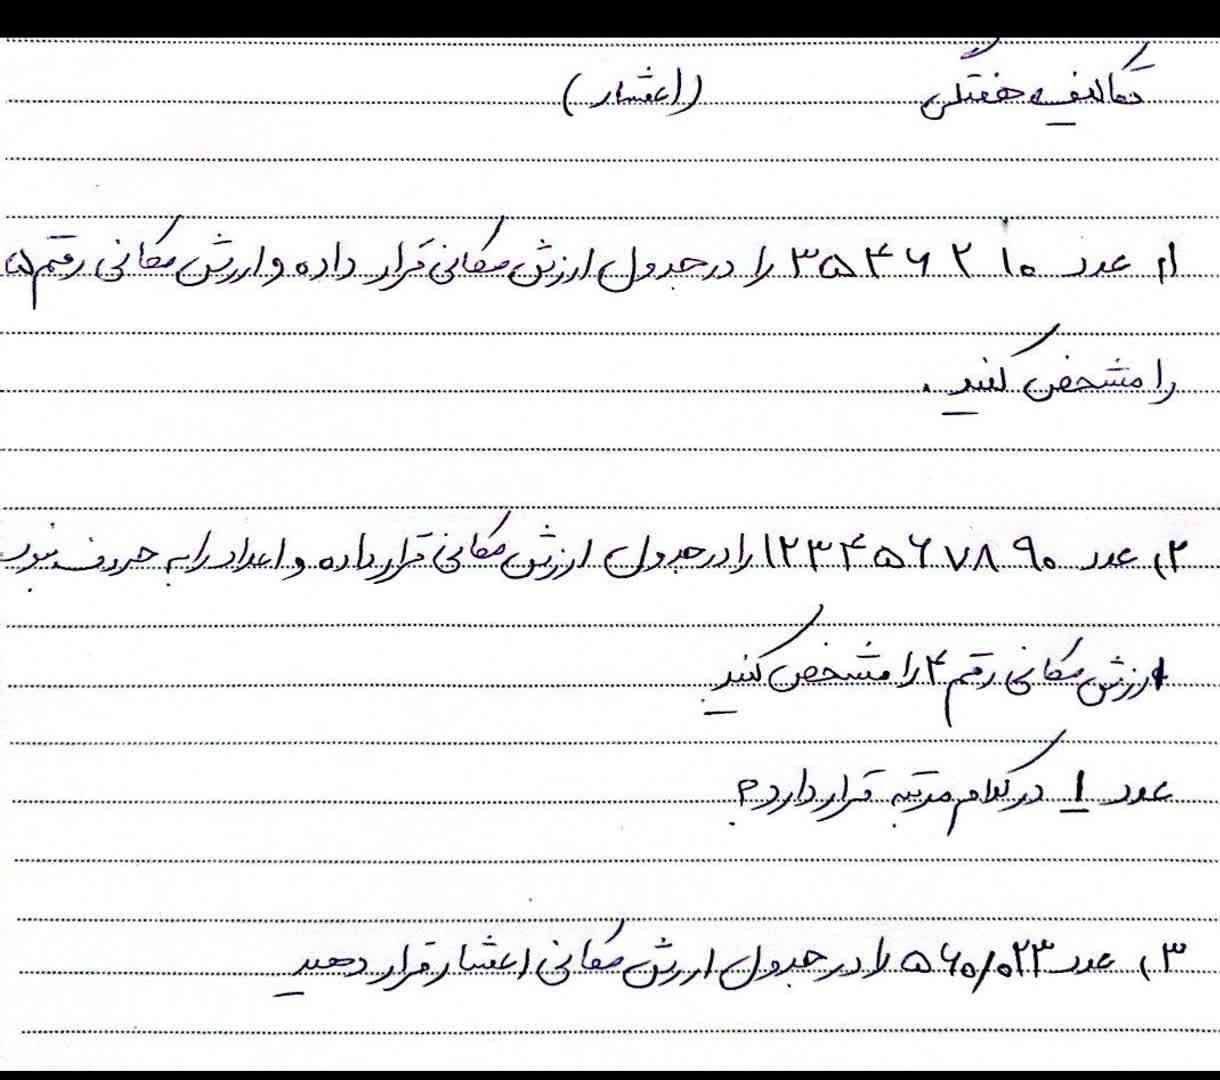 تکالیف هفتگی (اعشار)
۱) عدد ۳۵۴۶۲۱۰ را در جدول ارزش مکانی قرار داده و ارزش مکانی رقم ۵
را مشخص کنید.
۲) عدد ۱۲۳۴۵۶۷۸۹۰ را در جدول ارزش مکانی قرار داده و اعداد را به حروف
ارزش مکانی رقم ۴ را مشخص کنید
عدد ۱ در کدام مرتبه قرار دارد؟
۳) عدد ۵۶۰/۰۲۳ را در جدول ارزش مکانی اعشار قرار دهید